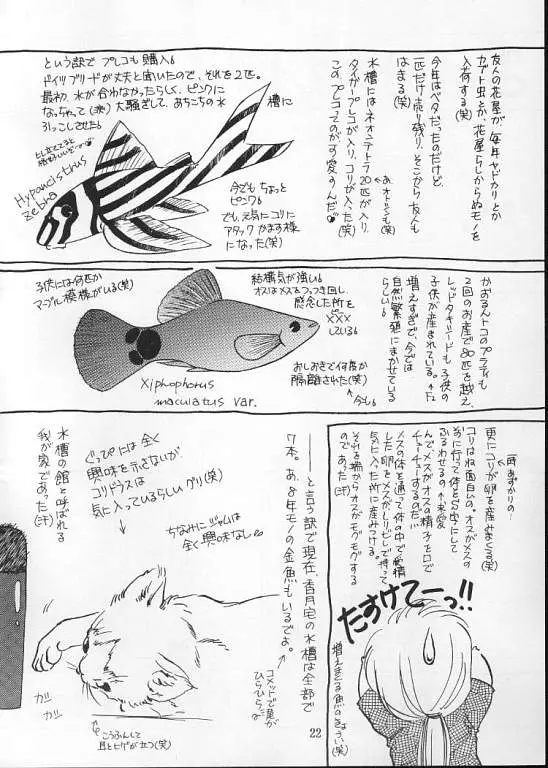 友人の花屋が、毎年ヤドカリとか
カブト虫とか、花屋らしからぬモノを
入荷する(笑)
今年はベタだったのだけど、
一匹だけ売り残り、そこから友人も
はまる(笑)
水槽にはネオンテトラ20匹が入り、
タイガープレコが入り、コリが入った(笑)
この、プレコってのがす愛すんだ
という訳でプレコも購入。
ドイツブリードが丈夫と聞いたので、それを2匹。
最初、水が合わなかったらしく、ピンクに
なっちゃって(涙)大騒ぎして、あちこちの水
槽に
引っこしさせた。
Hypancistrus
zebra
今でもちょっと
ピンク。
でも、元気にコリに
アタックかます様
になった(笑)
かおるんトコのプラティも
2回のお産で80匹を越え、
レッドタキシードも子供の
子供が産まれている。←F2
増えすぎて、今では
自然繁殖にまかせている
らしい。
結構気が強い。
オスはメスをつつき回し、
懸念した所を
×××
している。
子供には何匹か
マーブル模様がいる(笑)
おしおきで何度か
隔離された(笑)
↑今も。
Xiphophorus
maculatus var.
一時あずかりの
更にコリが卵を産みまくる(笑)
コリはね面白いの。オスがメスの
前に行って体をS字にして
ふるわせるの←求愛
んでメスがオスの精子を口で
チューチューするのだ!!
メスの体を通って体の中で受精
した卵をメスがヒレで持って、
気に入った所に産みつける。
そを端からオスがモグモグする
のであった(汗)
たすけてーっ!!
増えまくる魚のきょうい(笑)
――と言う訳で現在、香月宅の水槽は全部で
7本。あ、8年モノの金魚もいるでよ。
コメットで尾が
ひらひら
ぐっぴには全く
興味を示さないが
コリドラスは
気に入っているらしいグリ(笑)
ちなみにジャムは
全く興味なし
水槽の館と呼ばれる
我が家であった(汗)
ガガ
ガガ
こうふんして
耳とヒゲが立つ(笑)
22